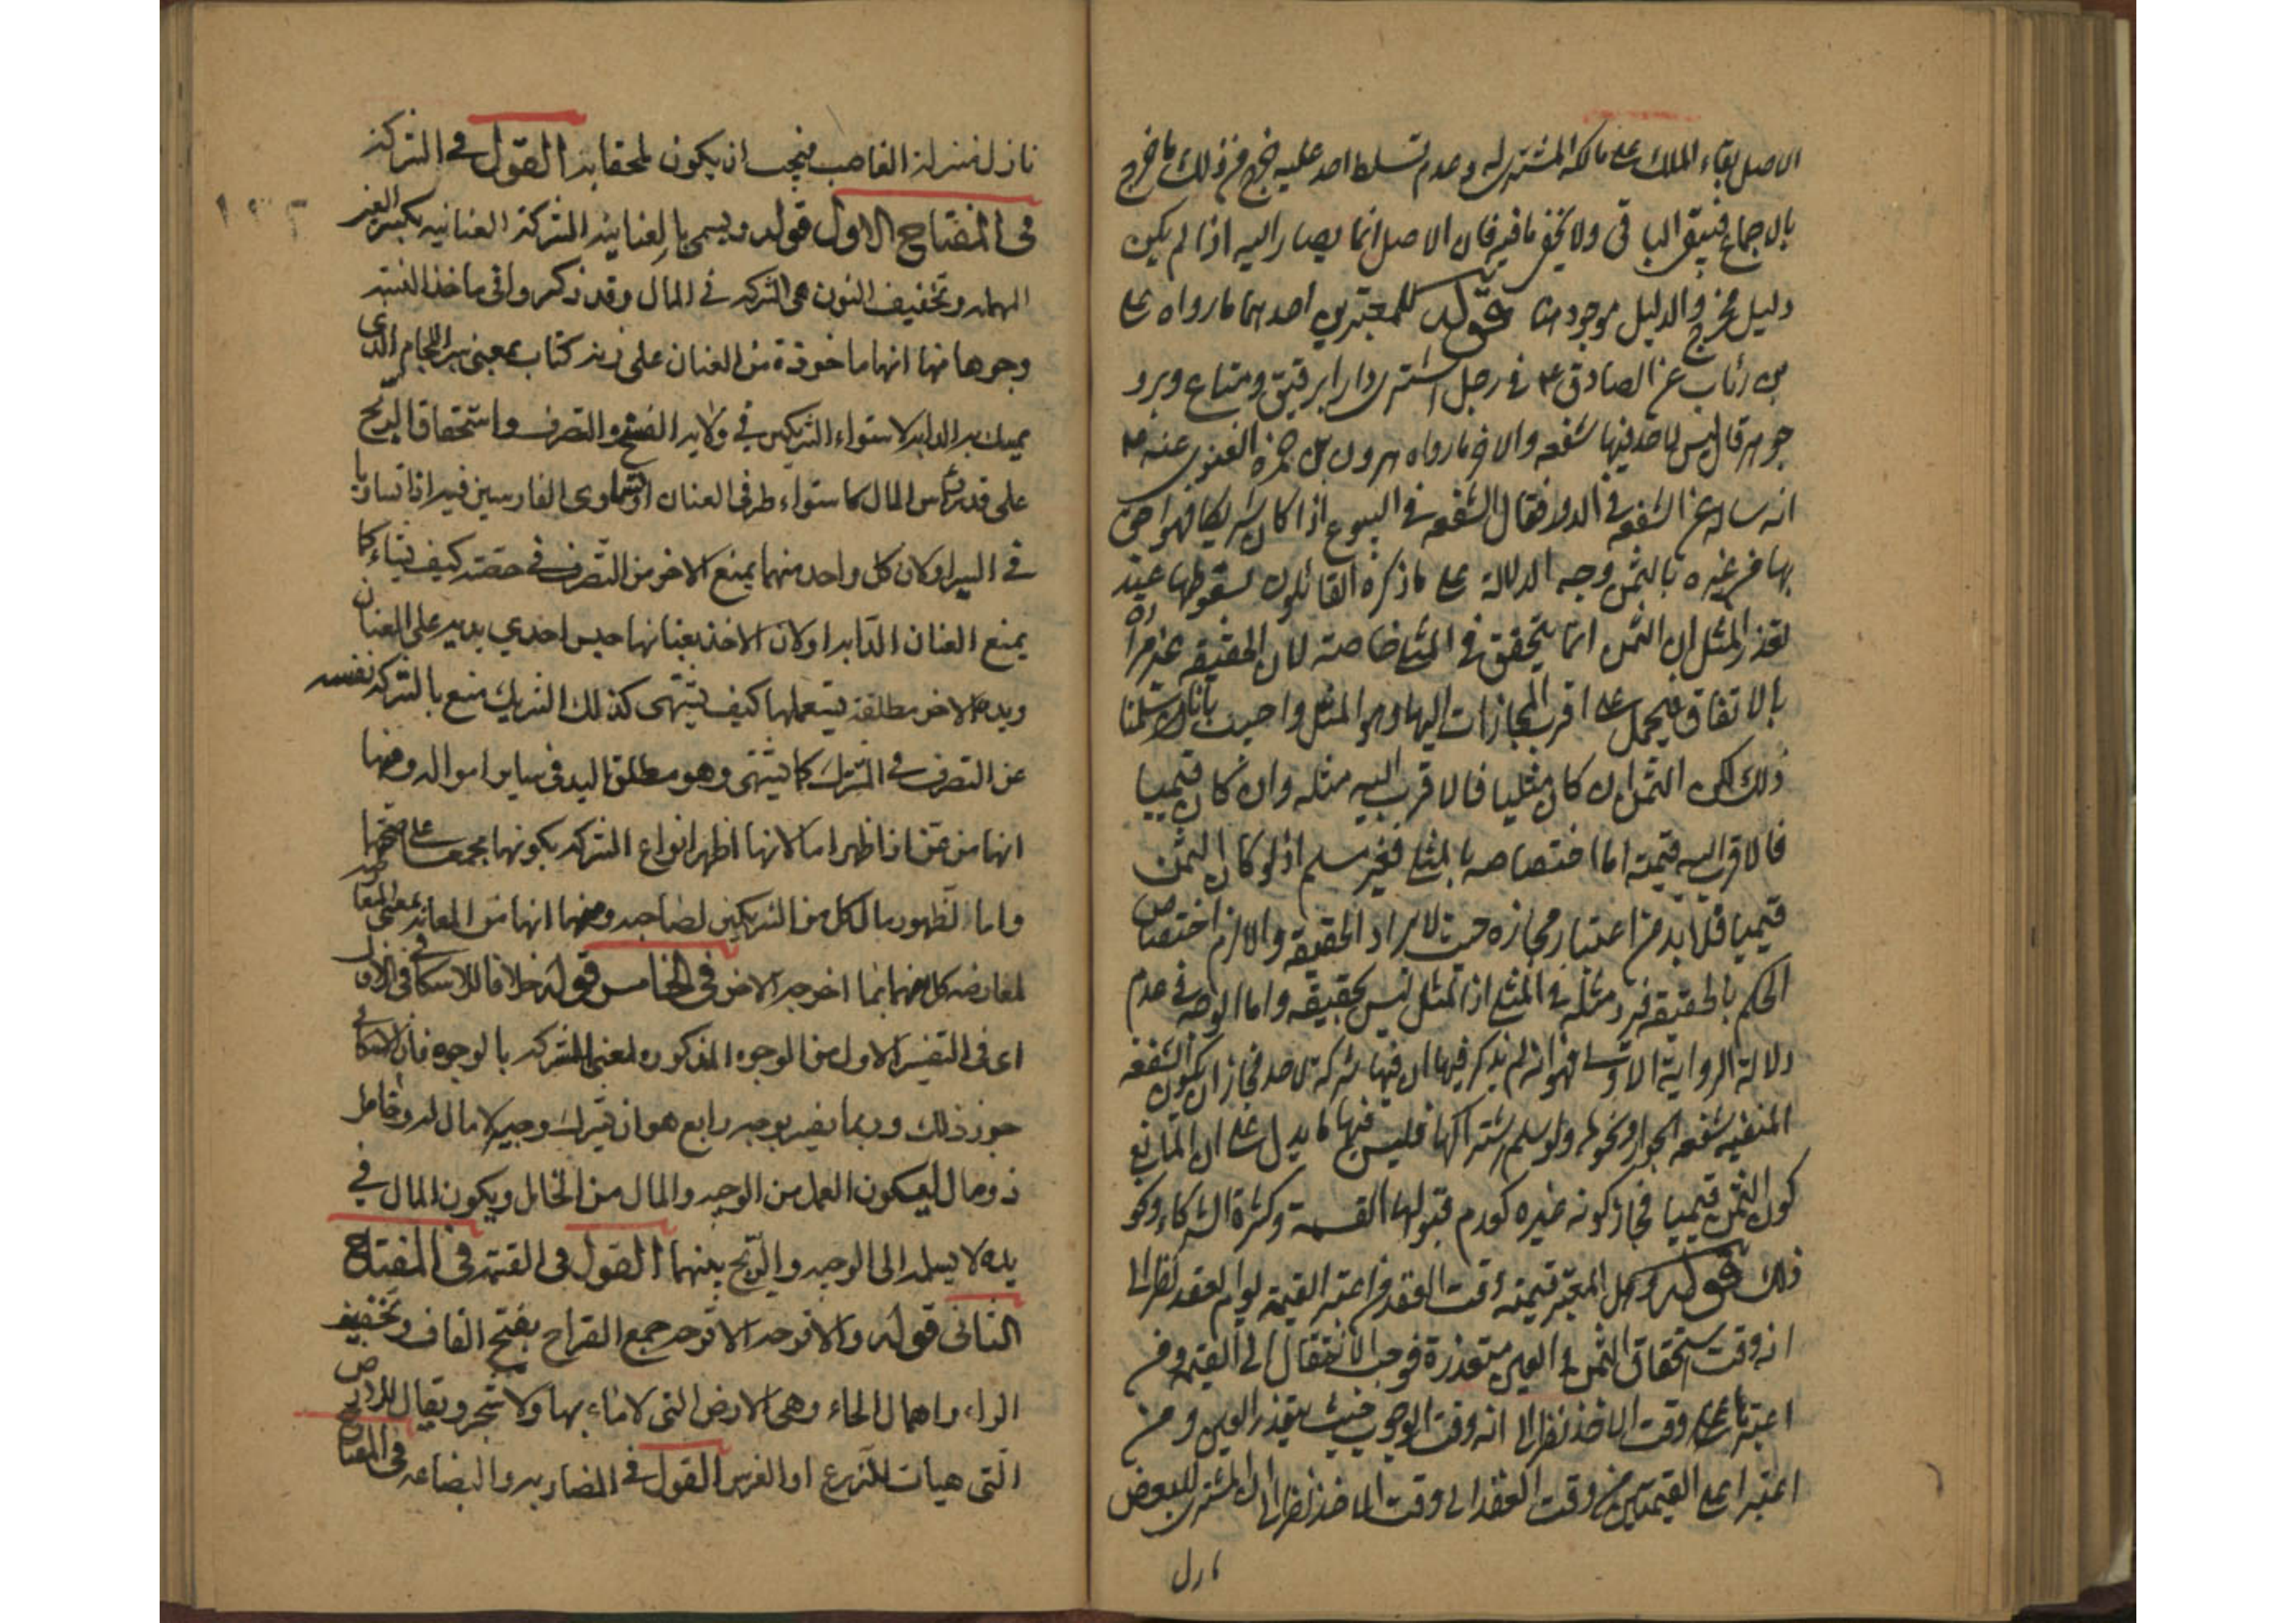 الاصل بقاء الملك على مالكه المشتري له وعدم تسلط احد عليه خرج من ذلك ما خرج
بالاجماع فيبقى الباقي ولا يخفى ما فيه فان الاصل انما يصار اليه اذا لم يكن
دليل مخرج والدليل موجود هنا قوله للمعتبرين احدهما ما رواه على
بن رئاب عن الصادق ع في رجل اشترى دارا برقيق ومتاع وبر و
جوهر قال ليس لاحد فيها شفعه والاخر ما رواه هرون بن حمزه الغنوى عنه ع
انه ساله عن الشفعه في الدور فقال الشفعه في البيوع اذا كان شريكا فهو احق
بها من غيره بالثمن وجه الدلالة على ما ذكره القائلون بسقوطها عند
تعذر المثل ان الثمن انما يتحقق في المثلى خاصته لان الحقيقه غير مرادة
بالاتفاق فيحمل على اقرب المجازات اليها وهو المثل واجيب بانا ولو سلمنا
ذلك لكن الثمن ان كان مثليا فالاقرب اليه مثله وان كان قيميا
فالاقرب اليه قيمته اما اختصاصه بالمثلى فغير مسلم اذ لو كان الثمن
قيميا فلا بد من اعتبار مجازه حيث لا يراد الحقيقه والا لزم اختصاص
الحكم بالحقيقه فيرد مثله في المثلى اذ المثل ليس بحقيقه واما الوجه في عدم
دلالة الرواية الاولى فهو انه لم يذكر فيها ان فيها شركة لاحد فجاز ان يكون الشفعه
المنفيه شفعه الجوار ونحوها ولو سلم اشتراكها فليس فيها ما يدل على ان المانع
كون الثمن قيميا فجاز كونه غيره كعدم قبولها القسمة وكثرة الشركاء ونحو
ذلك قوله وهل المعتبر قيمته وقت العقد من اعتبر القيمة يوم العقد نظر الى
انه وقت استحقاق الثمن و العين متعذرة فوجب الانتقال الى القيمه ومن
اعتبرها وقت الاخذ نظر الى انه وقت الوجوب حيث يتعذر العين ومن
اعتبر اعلى القيمتين من وقت العقد الى وقت الاخذ نظر الى ان المشترى للبعوض
نازل
نازل منزلة الغاصب فيجب ان يكون ملحقا به القول في الشركة
في المفتاح الاول قوله ويسمى بالعنانيه الشركة العنانيه بكسر العين
المهمله وتخفيف النون هي الشركه في المال وقد ذكروا في ماخذ النسبه
وجوها منها انها ماخوذة من العنان على زنه كتاب بمعنى سير اللجام الذى
يمسك به الدابه لاستواء الشريكين في ولايه الفسخ والتصرف واستحقاق الربح
على قدر راس المال كاستواء طرفى العنان او تساوى الفارسين فيه اذا تساويا
في السير او لان كل واحد منهما يمنع الاخر من التصرف في حصته كيف يشاء كما
يمنع العنان الدابه او لان الاخذ بعنانها حبس احدي يديه على العنان
ويده الاخر مطلقه يستعملها كيف يشتهى كذلك الشريك منع بالشركه نفسه
عن التصرف في المشترك كما يشتهى وهو مطلق اليد في ساير امواله ومنها
انها من عن اذا ظهر اما لانها اظهر انواع الشركه بكونها مجمعا على صحتها
واما لظهور مال كل من الشريكين لصاحبه ومنها انها من المعانه بمعنى المعارضه
لمعارضه كل منهما بما اخرجه الاخر في الخامس قوله خلافا للاسكافي في الاول
اى في التفسير الاول من الوجوه المذكوره لمعنى الشركه بالوجوه فان الاسكافي
جوز ذلك وربما يفسر بوجه رابع هو ان يشترك وجيه لا مال له وخامل
ذو مال ليكون العمل من الوجيه والمال من الخامل ويكون المال في
يده لا يسلمه الى الوجيه والربح بينهما القول في القسمة في المفتاح
الثانى قوله والاقرحه الاقرحه جمع القراح بفتح القاف وتخفيف
الراء واهمال الحاء وهى الارض التى لا ماء بها ولا شجر ويقال للارض
التى هيات للزرع او الغرس القول في المضاربه والبضاعه في المفتاح